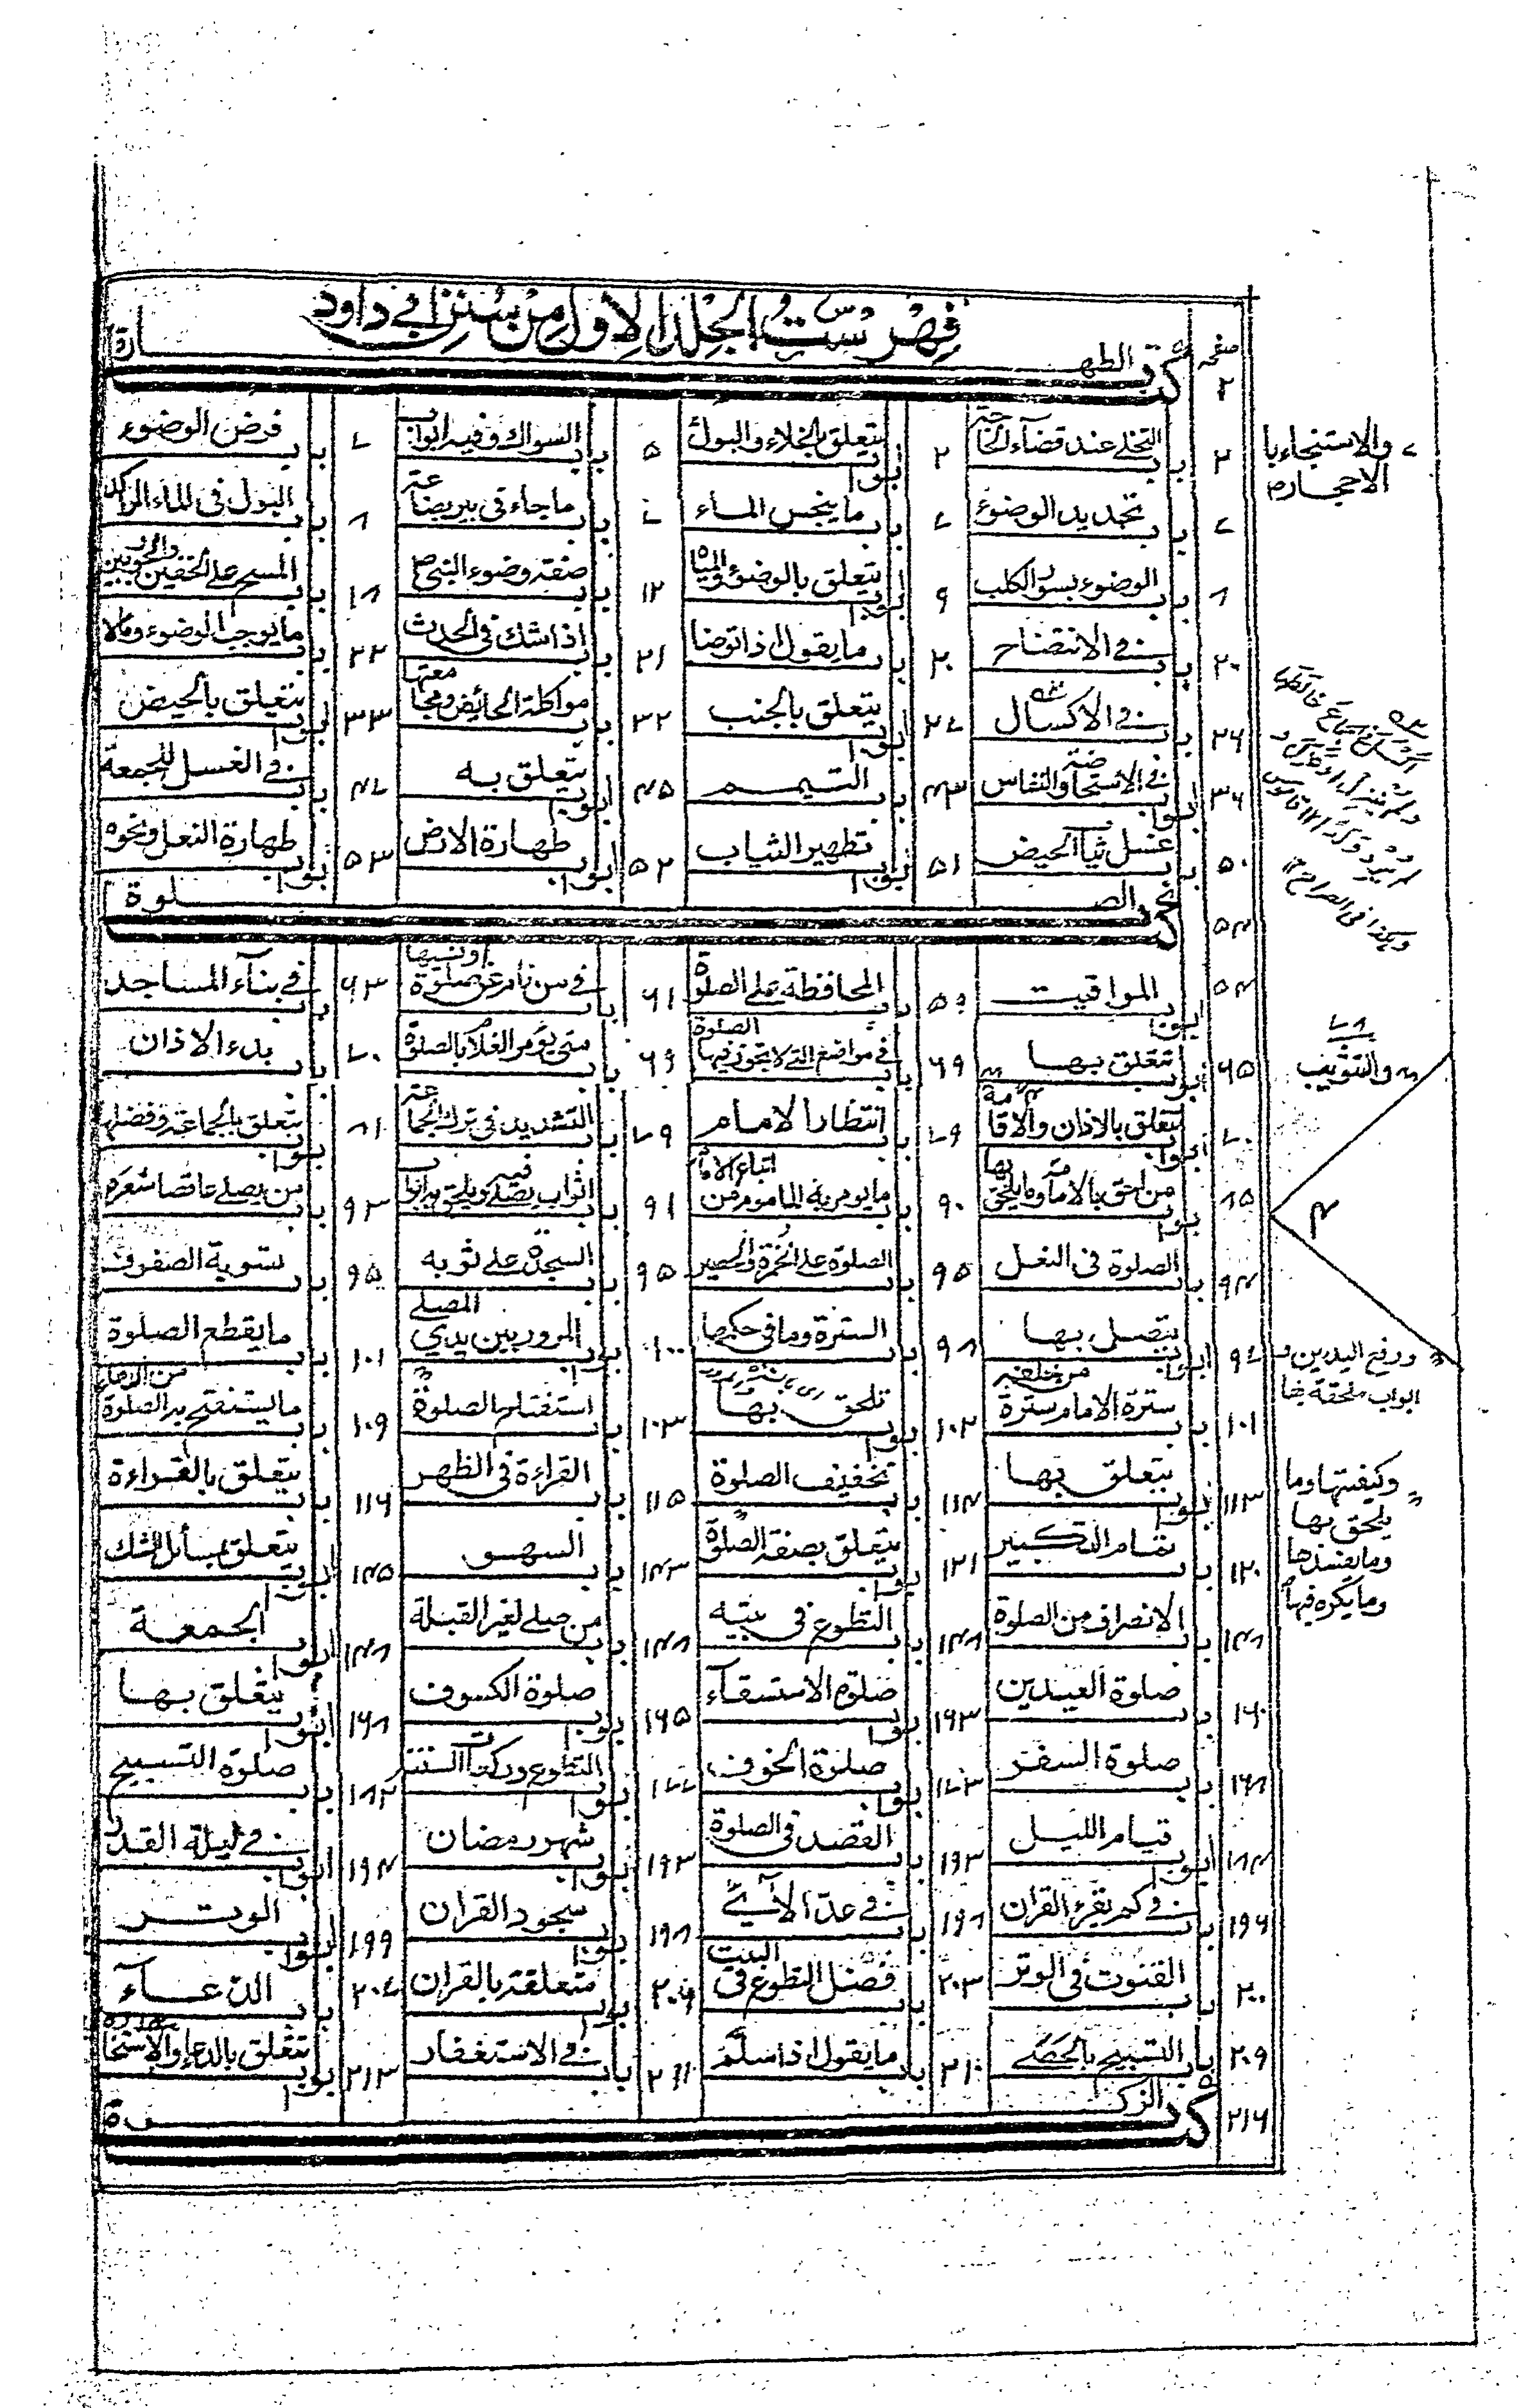 فهرست الجلد الاول من سنن ابي داود
صفحه
٢ كتاب الطهارة
٢ باب التخلي عند قضاء الحاجة ٢ ابواب يتعلق بالخلاء والبول ٥ باب السواك وفيه ابواب ٧ باب فرض الوضوء
٧ باب تجديد الوضوء ٧ باب ما ينجس الماء ٧ باب ما جاء في بير بضاعة ٨ باب البول في الماء الراكد
٨ باب الوضوء بسؤر الكلب ٩ ابواب يتعلق بالوضوء والمياه ١٢ باب صفة وضوء النبي ١٨ باب المسح على الخفين والجوربين
٢٠ باب في الانتضاح ٢٠ باب ما يقول اذا توضا ٢١ باب اذا شك في الحدث ٢٢ باب ما يوجب الوضوء ومالا
٢٦ باب في الاكسال ٢٧ ابواب يتعلق بالجنب ٣٢ باب مواكلة الحائض ومجامعتها ٣٣ ابواب يتعلق بالحيض
٣٦ ابواب في الاستحاضة والنفاس ٤٣ باب التيمم ٤٥ ابواب يتعلق به ٤٧ باب في الغسل للجمعة
٥٠ باب غسل ثياب الحيض ٥١ ابواب تطهير الثياب ٥٢ ابواب طهارة الارض ٥٣ ابواب طهارة النعل ونحوه
٥٤ كتاب الصلوة
٥٤ ابواب المواقيت ٥٩ باب المحافظة على الصلوة ٦١ باب في من نام عن صلوة او نسيها ٦٣ باب في بناء المساجد
٦٥ ابواب تتعلق بها ٦٩ باب في مواضع التي لا تجوز فيها الصلوة ٦٩ باب متى يؤمر الغلام بالصلوة ٧٠ باب بدء الاذان
٧٠ ابواب تتعلق بالاذان والاقامة ٧٩ باب انتظار الامام ٧٩ باب التشديد في ترك الجماعة ٨١ ابواب يتعلق بالجماعة وفضلها
٨٥ ابواب من احق بالامامة وما يلحق بها ٩٠ باب ما يومر به الماموم من اتباع الامام ٩١ باب اثواب يصلى فيه ويلحق به ابواب ٩٣ باب من يصلي عاقصا شعره
٩٤ باب الصلوة في النعل ٩٥ باب الصلوة على الخمرة والحصير ٩٥ باب السجدة على ثوبه ٩٥ باب تسوية الصفوف
٩٧ ابواب يتصل بها ٩٨ باب السترة وما في حكمها ١٠٠ ابواب المرور بين يدي المصلي ١٠١ باب ما يقطع الصلوة
١٠١ باب سترة الامام سترة من خلفه ١٠٢ ابواب تلحق بها ١٠٣ باب استفتاح الصلوة ١٠٩ باب ما يستفتح به الصلوة من الدعاء
١١٣ ابواب يتعلق بها ١١٤ باب تخفيف الصلوة ١١٥ باب القراءة في الظهر ١١٦ باب يتعلق بالقراءة
١٢٠ باب تمام التكبير ١٢١ ابواب يتعلق بصفة الصلوة ١٤٣ باب السهو ١٤٥ ابواب يتعلق بمسائل الشك
١٤٨ باب الانصراف من الصلوة ١٤٨ باب التطوع في بيته ١٤٨ باب من صلى لغير القبلة ١٤٨ ابواب الجمعة
١٦٠ باب صلوة العيدين ١٦٣ ابواب صلوة الاستسقاء ١٦٥ ابواب صلوة الكسوف ١٦٨ ابواب يتعلق بها
١٦٨ باب صلوة السفر ١٧٣ ابواب صلوة الخوف ١٧٧ ابواب التطوع وركعات السنن ١٨٢ باب صلوة التسبيح
١٨٤ ابواب قيام الليل ١٩٣ باب القصد في الصلوة ١٩٣ ابواب شهر رمضان ١٩٤ ابواب في ليلة القدر
١٩٦ باب في كم يقرء القران ١٩٨ باب في عد الآي ١٩٨ ابواب سجود القران ١٩٩ ابواب الوتر
٢٠٠ باب القنوت في الوتر ٢٠٣ باب فضل التطوع في البيت ٢٠٤ ابواب متعلقة بالقران ٢٠٧ باب الدعاء
٢٠٩ باب التسبيح بالحصى ٢١٠ باب ما يقول اذا سلم باب في الاستغفار ٢١٣ ابواب تتعلق بالدعاء والاستخارة
٢١٦ كتاب الزكوة
والاستنجاء با
الاحجار
٧٨
والتثويب
٤
ورفع اليدين و
ابواب ملحقة بها
وكيفيتها وما
يلحق بها
وما يفسدها
وما يكره فيها